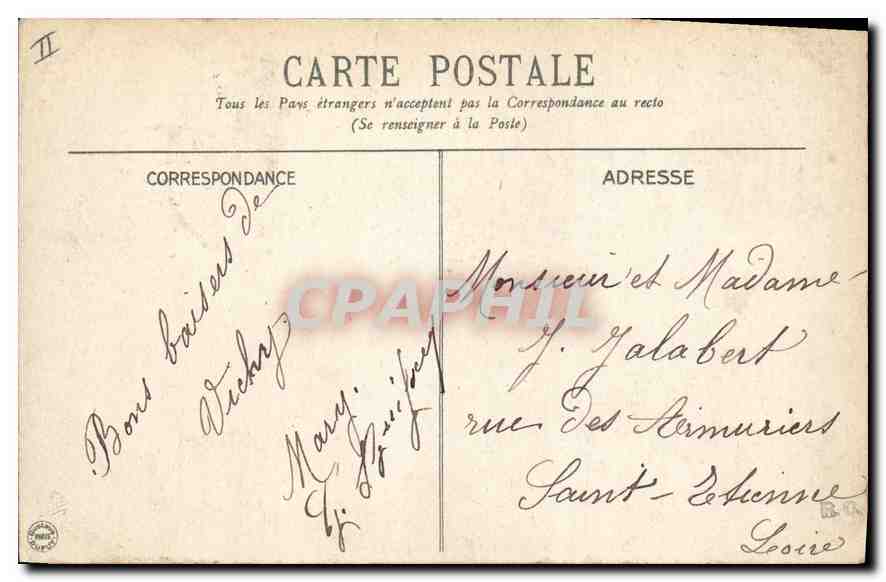 II
CARTE POSTALE
Tous les Pays étrangers n'acceptent pas la Correspondance au recto
(Se renseigner à la Poste)
CORRESPONDANCE
Bons baisers de
Vichy.
Mary.
ADRESSE
Monsieur et Madame
J. Jalabert
rue des Armuriers
Saint-Etienne
Loire
CPAPHIL
R.C.
PARIS